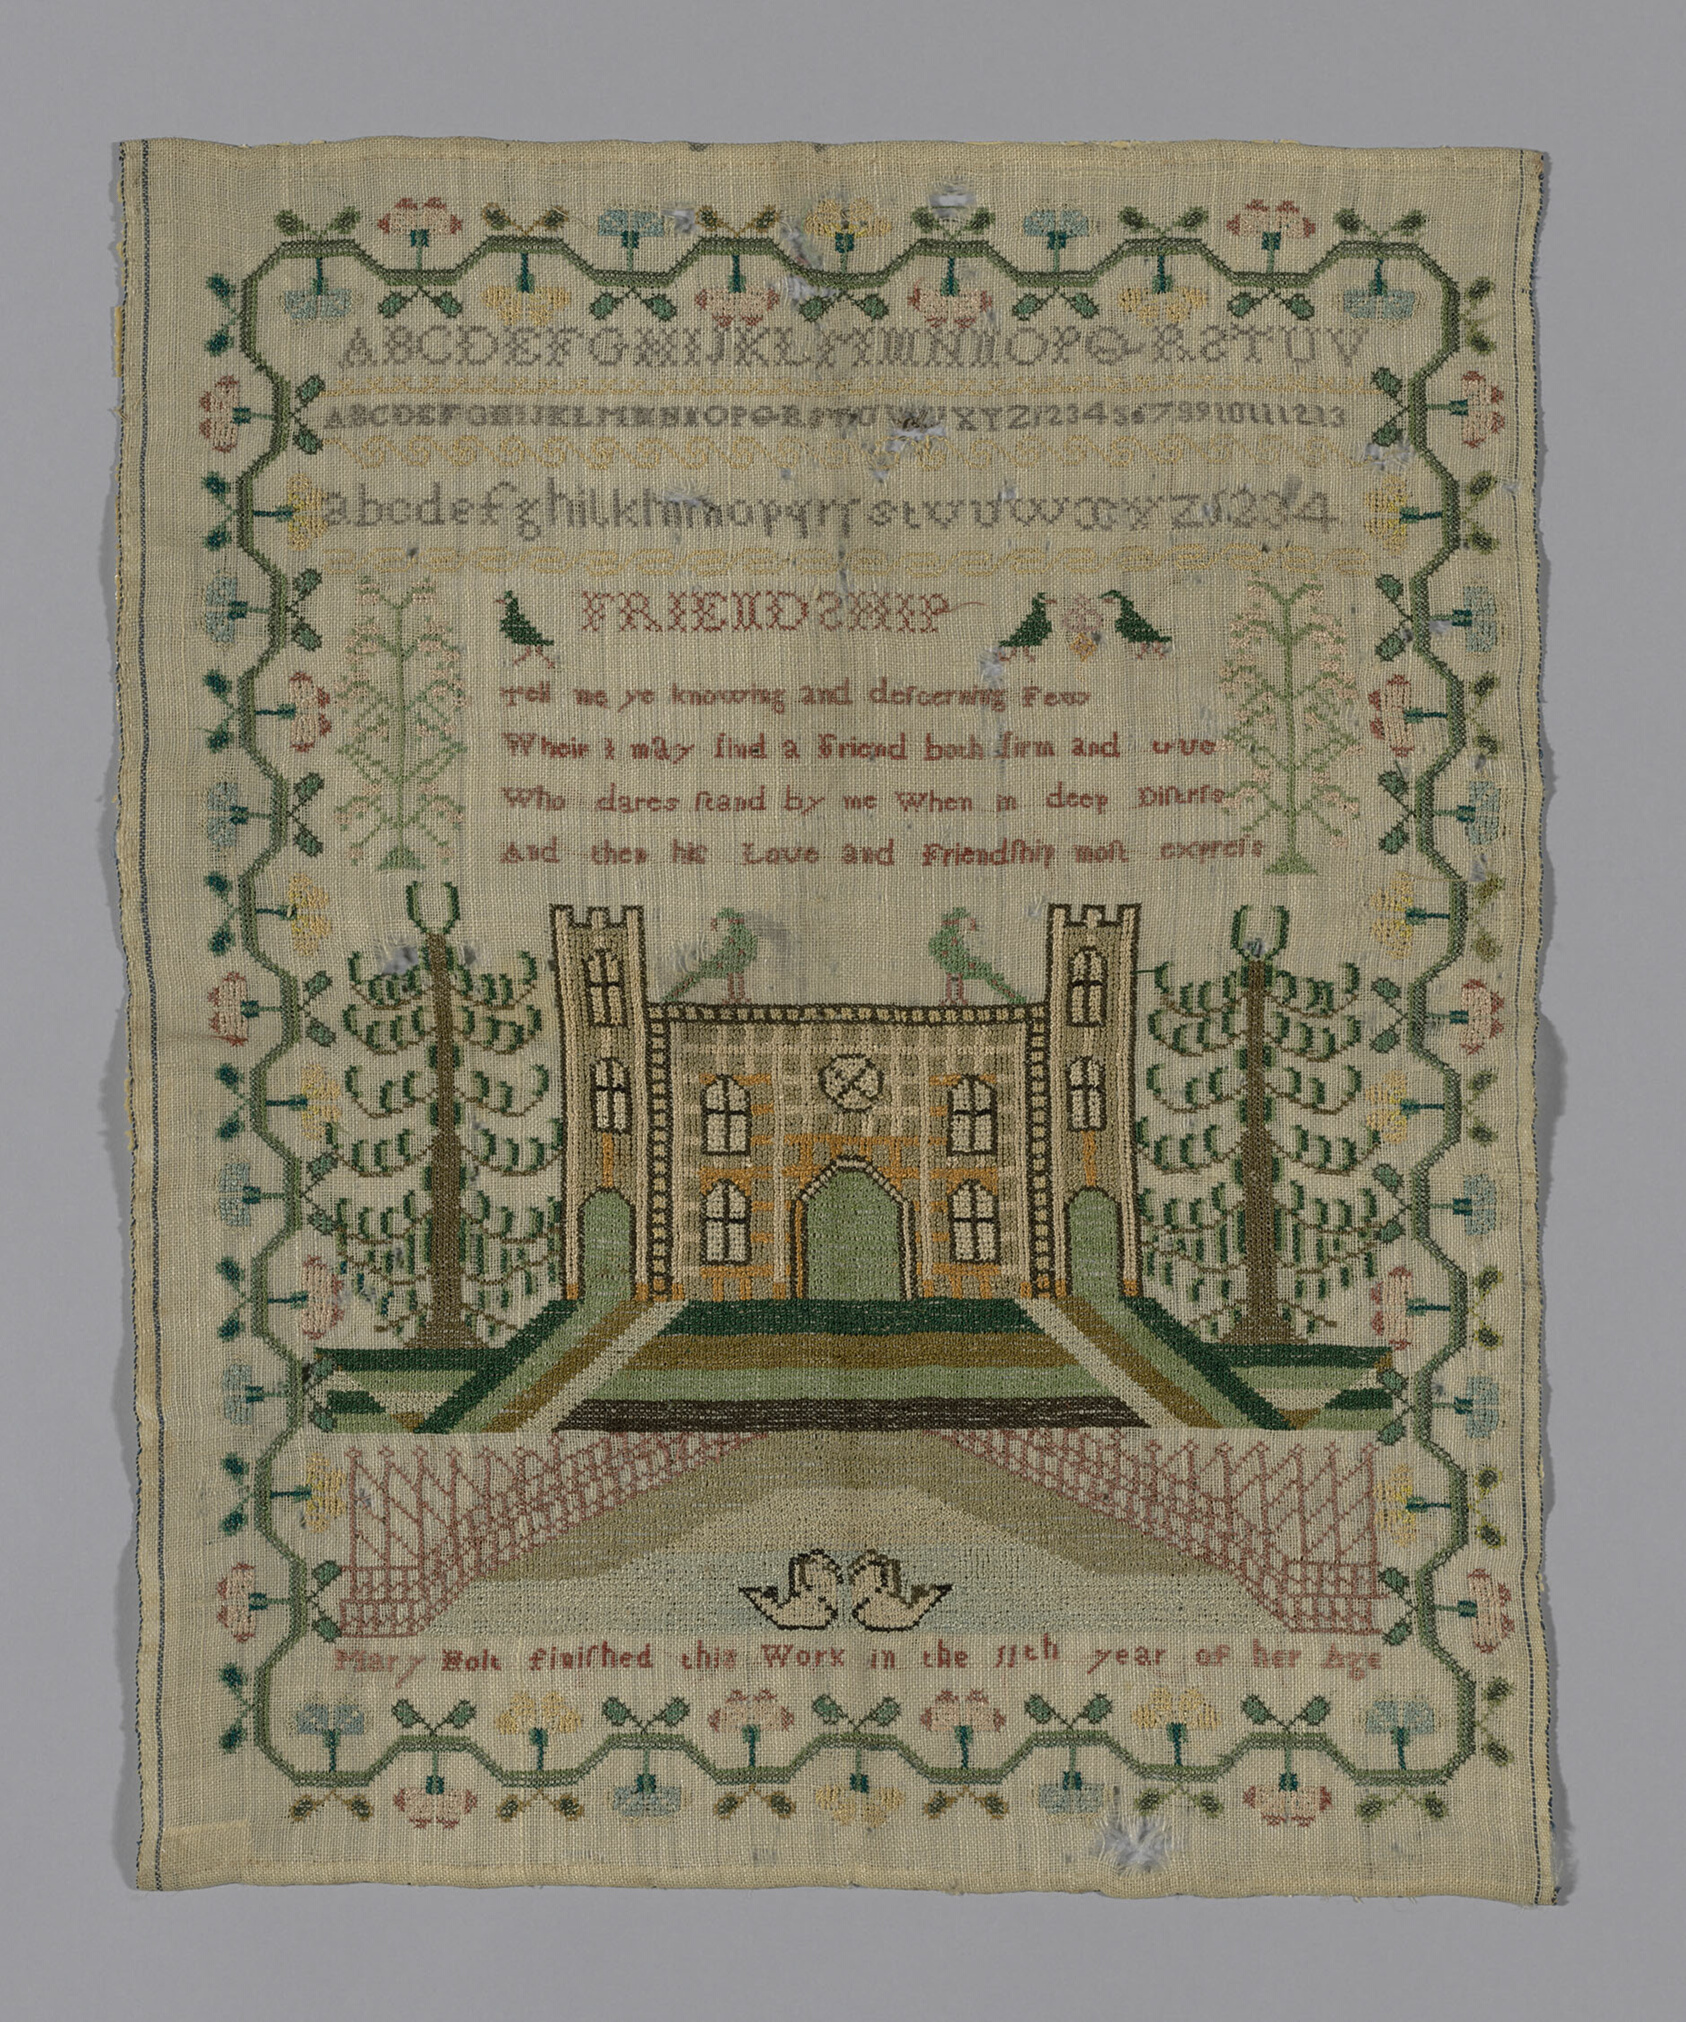 ABCDEFGHIJKLMNOPQRSTUV
ABCDEFGHIJKLMNOPQRSTUVWXYZ12345678910111213
abcdefghilklmnopqrſstvuwxyz1234
FRIENDSHIP
Tell me ye knowing and deſcerning Few
Wheir I may find a Friend both firm and true
Who dares ſtand by me When in deep Diſtreſs
And then his Love and Friendſhip moſt expreſs
Mary Holt finiſhed this Work in the 11th year of her Age